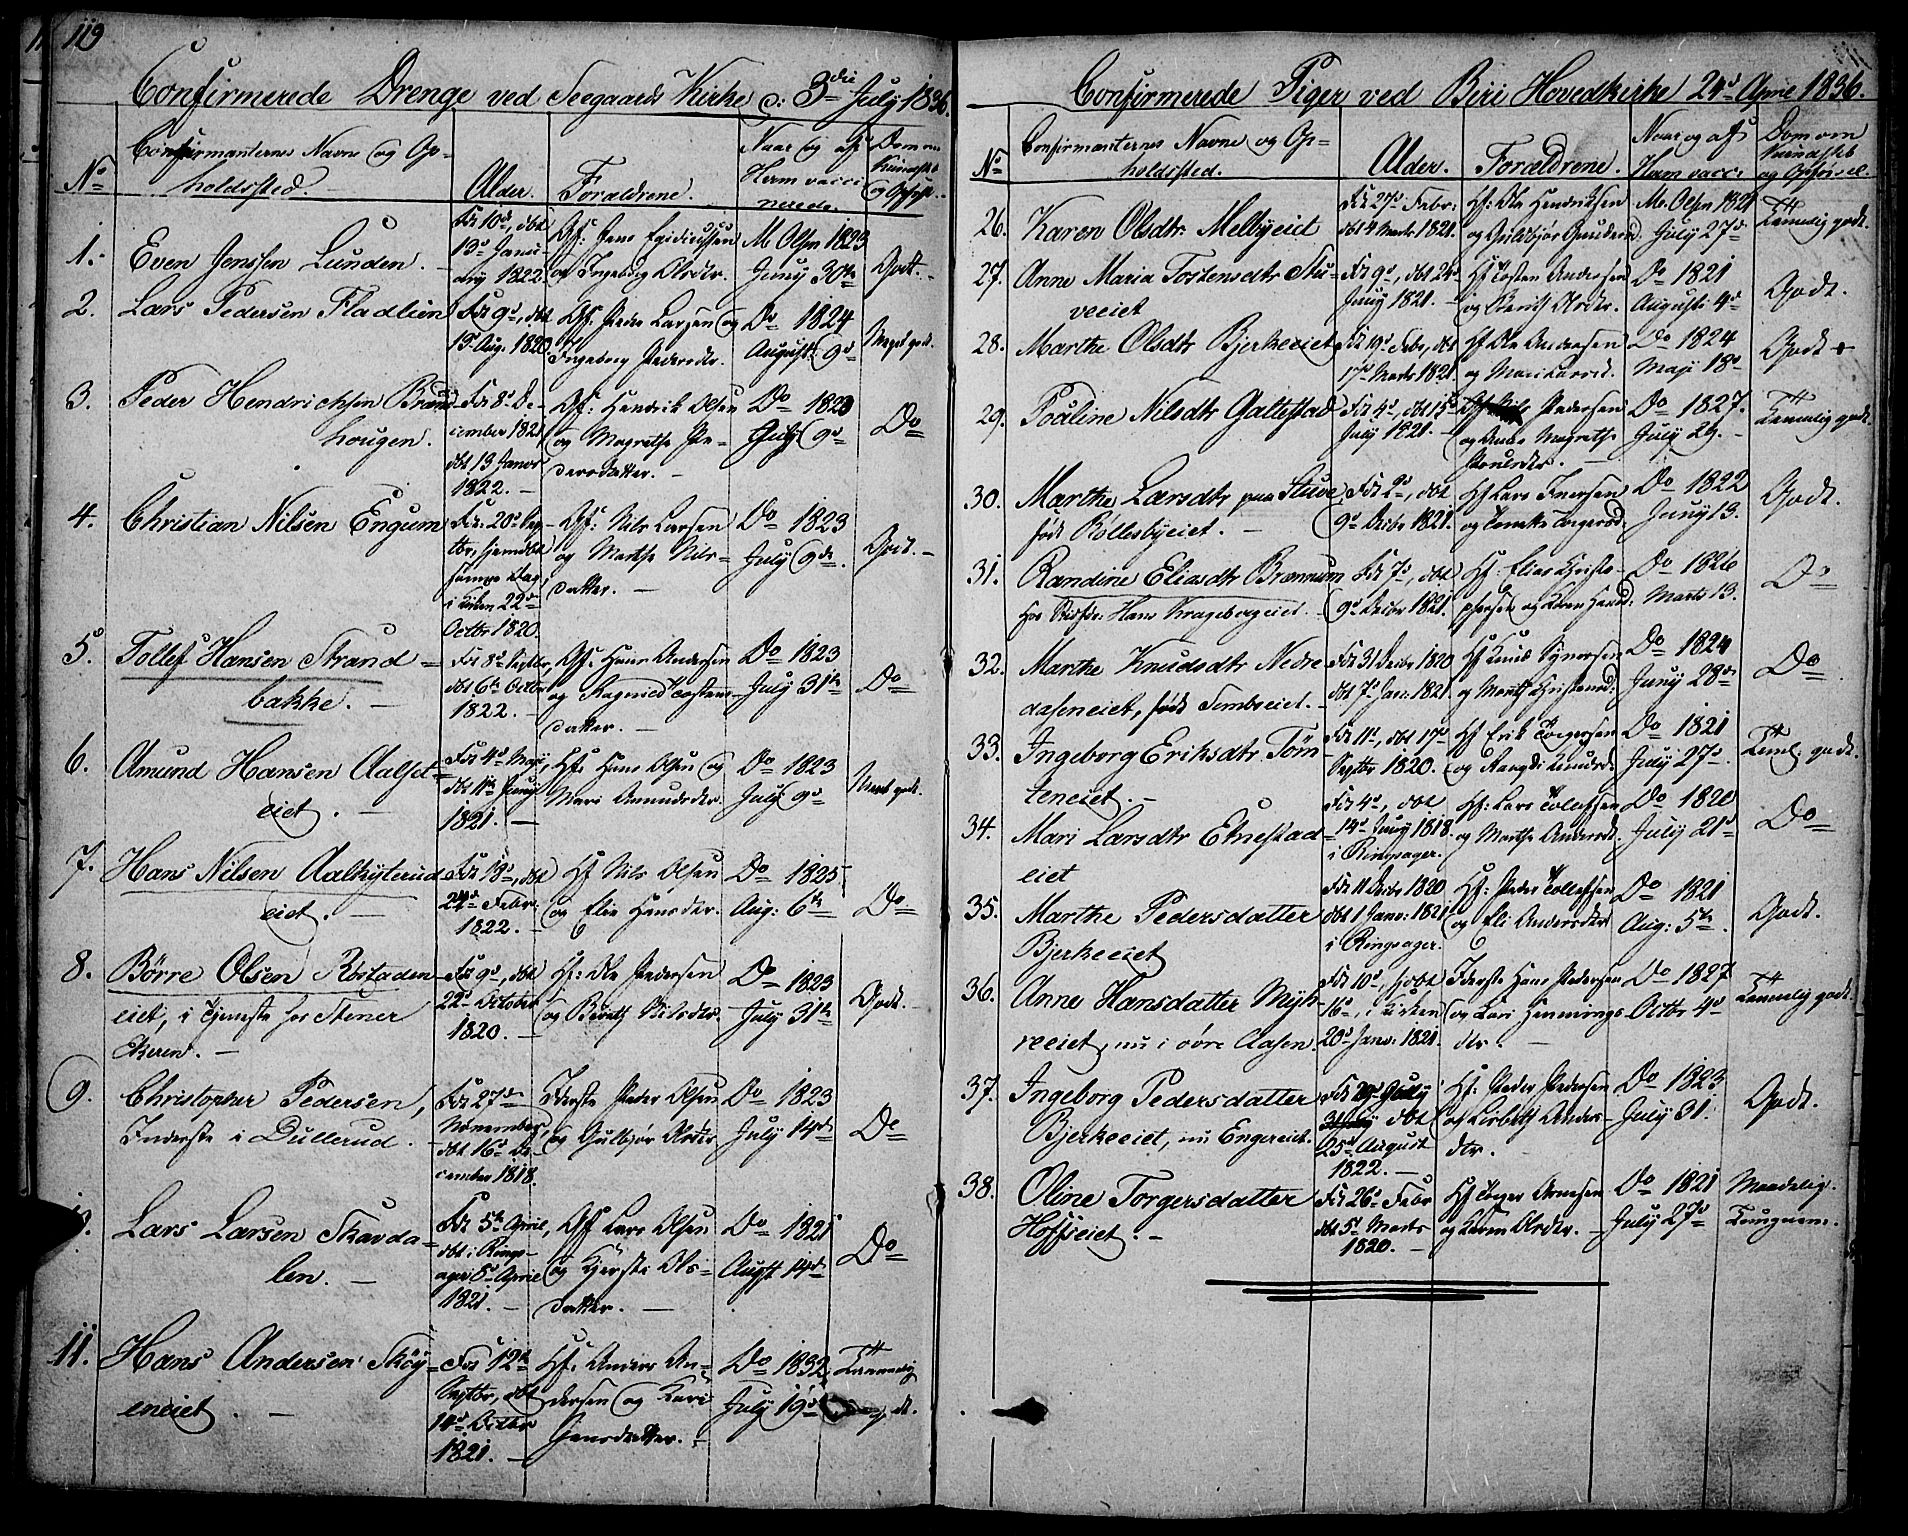 119
Confirmerede Drenge ved Seegaards Kirke d: 3die July 1836.
No
Confirmanternes Navne og Op-
holdssted.
Alder.
Forældrene.
Naar og af
Hvem vacci
nerede.
Dom om
Kundskab
og Opførsel.
1.
Even Jenssen Lunden.
Fdt 10de, dbt
13de Janu-
ary 1822.
Gf. Jens Egidiussen
og Ingeborg Olsdtr.
M Olsen 1823
Juny 30te
Godt.
2.
Lars Pedersen Fladlien
Fdt 9de, dbt
13de Aug. 1820.
Gf. Peder Larsen og
Ingeborg Pedersdtr.
Do 1824
August 9de
Meget godt.
3.
Peder Hendrichsen Brænd-
hougen.
Fdt 8de De-
cember 1821
dbt 13 Januar
1822.
Gf: Hendrik Olsen
og Magrethe Pe-
dersdatter.
Do 1823
July 9de
Do
4.
Christian Nilsen Engum
Fdt. 20de Sep-
tbr, hjemdøbt
samme Dag,
i Kirken 22de
Octbr 1820.
Gf: Nils Larsen
og Marthe Nils-
datter.
Do 1823
July 9de.
Godt.
5.
Tollef Hansen Strand-
bakke.
Fdt 8de Septbr,
dbt 6te Octbr
1822.
Gf. Hans Andersen
og Ragnild Tostens-
datter.
Do 1823
July 31te
Do
6.
Amund Hansen Aalset-
eiet.
Fdt 4de May
dbt 11te Juny
1821.
Hf. Hans Olsen og
Mari Amundsdtr.
Do 1823
July 9de
Meget godt.
7.
Hans Nilsen Aalhyterud
eiet.
Fdt 18de, dbt
24de Febr.
1822.
Hf Nils Olsen
og Elie Hansdtr.
Do 1825
Aug: 6te
Do
8.
Børre Olsen Røstaden-
eiet, i Tjeneste hos Stener
Ekeren.
Fdt 9de, dbt
22de October
1820.
Hf: Ole Pedersen
og Berith Nilsdtr.
Do 1823
July 31te
Godt.
9.
Christopher Pedersen,
Inderste i Dullerud.
Fdt 27de
November,
dbt 16de De-
cember 1818.
Inderste Peder Olsen
og Gulbjør Olsdtr
Do 1823
July 14de
Do
Lars Larsen Skavda-
len.
Fdt 5te April,
dbt i Rings-
ager 8de April
1821.
Gf Lars Olsen
og Kjersti Ols-
datter.
Do 1821
August 14de
Do
11.
Hans Andersen Skøy-
eneiet.
Fdt 12te
Septbr, dbt
14de Octbr
1821.
Hf: Anders An-
dersen og Kari
Jensdatter.
Do 1832
July 19de
Temmelig
godt.
Confirmerede Piger ved Biri Hovedkirke 24de April 1836.
No
Confirmanternes Navne og Op-
holdssted.
Alder.
Forældrene.
Naar og af
Hvem vacc:
Dom om
Kundskab
og Opførsel.
26.
Karen Olsdtr Melbyeiet
Fdt 27de Febr:
dbt 4 Marts 1821.
Hf: Ole Hendriksen
og Gulbjør Gundersd.
M. Olsen 1821
July 27de
Temmelig godt.
27.
Anne Maria Tostensdtr Stu-
veeiet
Fdt 9de, dbt 24de
Juny 1821.
Hf Tosten Andersen
og Berith Olsdtr.
Do 1821
Augusti 4de
Godt.
28.
Marthe Olsdtr Bjerkeeiet
Fdt 19de Febr, dbt
17de Marts 1821.
Hf Ole Andersen
og Mari Larsd.
Do 1824
Maji 18de
Godt
29.
Pauline Nilsdtr Galtestad
Fdt 4de, dbt 15de
July 1821.
Gf Nils Pedersen
og Anne Magrethe
Do 1827.
July 26.
Temmelig godt.
30.
Marthe Larsdtr paa Stuve
født Røllesbyeiet.
Fdt 2de, dbt
9de Decbr 1821.
Hf Lars Iversen
Do 1822
Juny 13.
Godt.
31.
Randine Eliasdtr Brænnum
Hos Huusfdr: Hans Krageborgeiet.
Fdt 7de, dbt
9de Decbr 1821.
Hf. Elias Christo-
phersen og Karen Hansd:
Do 1826
Marts 13.
Do
32.
Marthe Knudsdtr Nedre
aaseneiet, født Sembseiet.
Fdt 31 Decbr 1820
dbt 7de Jan: 1821.
Hf Knud Synersen
og Marthe Christensd:
Do 1824
Juny 28de
Do
33.
Ingeborg Eriksdtr Torn
teneiet.
Fdt 11te, dbt 17de
Septbr 1820.
Hf Erik Torgersen
og Rangdi Knudsd.
Do 1821
July 27de
Teml. godt.
34.
Mari Larsdtr Elnestad
eiet
Fdt 4de, dbt
14de Juny 1818.
i Ringsager.
Hf: Lars Tollefsen
og Marthe Andersd.
Do 1820
July 21de
Do
35.
Marthe Pedersdatter
Bjerkeeiet
Fdt 11 Decbr 1820
dbt 1 Janr: 1821
i Ringsager.
Hf: Peder Tollefsen
og Eli Andersdtr
Do 1821
Aug: 5te.
Godt.
36.
Anne Hansdatter Myh-
reeiet, nu i øvre Aasen.
Fdt 10de, hjdbt
16de, i Kirken
28de Janr: 1821.
Inderste Hans Pedersen
og Kari Hemmings-
dtr.
Do 1827
Octbr 4de
Temmelig godt.
37.
Ingeborg Pedersdatter
Bjerkeeiet, nu Engereiet.
Fdt 29de July
dbt
25de August
1822.
Hf: Peder Pedersen
og Lisbeth Anders-
dtr.
Do 1823
July 31.
Godt.
38.
Oline Torgersdatter
Hoffseiet.
Fdt 26de Febr
dbt 5te Marts
1820.
Hf Torger Arnesen
og Karen Olsdtr.
Do 1821
July 27de
Maadelig